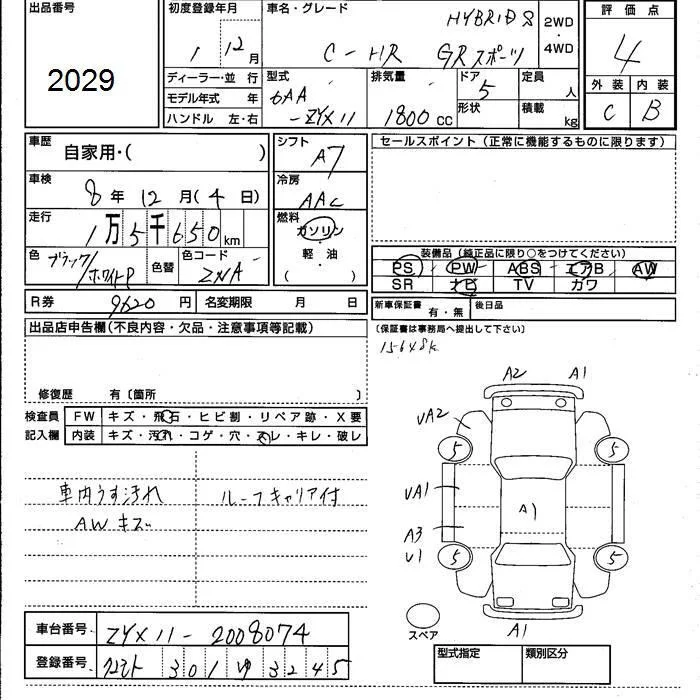 出品番号
2029
初度登録年月
1 12月
ディーラー・並 行
モデル年式 年
ハンドル 左・右
車名・グレード
HYBRID S
C-HR GRスポーツ
2WD
・
4WD
型式
6AA
-ZYX11
排気量
1800 cc
ドア
5
形状
定員
人
積載
kg
評 価 点
4
外 装 内 装
C B
車歴
自家用・( )
車検
8年 12月(4日)
走行
1万5千650km
色
ブラック/
ホワイトP
色替
色コード
ZNA
シフト
A7
冷房
AAC
燃料
ガソリン
軽・油
( )
R券 9620 円
名変期限 月 日
セールスポイント (正常に機能するものに限ります)
装備品 (純正品に限り○をつけてください)
PS PW ABS エアB AW
SR ナビ TV カワ
新車保証書
有・無
後日品
(保証書は事務局へ提出して下さい)
15648k
出品店申告欄(不良内容・欠品・注意事項等記載)
修復歴 有〔箇所 〕
検査員
記入欄
FW キズ・飛石・ヒビ割・リペア跡・X要
内装 キズ・汚れ・コゲ・穴・スレ・キレ・破レ
車内うす汚れ
AW キズ
ルーフキャリア付
A2 A1
UA2
5 5
UA1
A1
A3
U1
5 5
スペア
A1
車台番号 ZYX11-2008074
登録番号 301 ゆ 3245
型式指定 類別区分